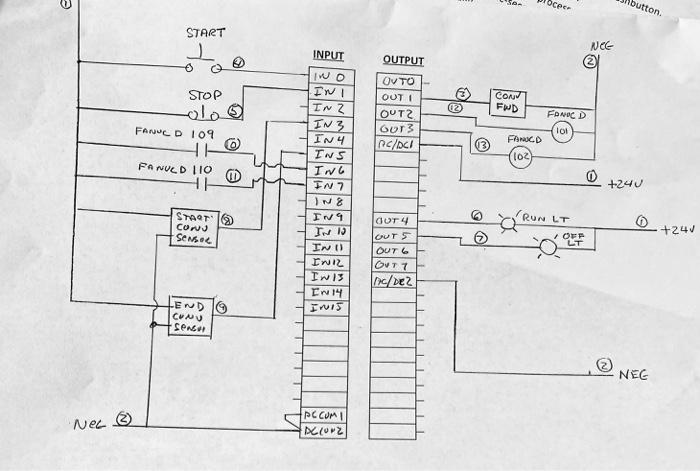 nbutton.
1
START
4
STOP
5
FANUC D 109
10
FANUC D 110
11
START
CONV
SENSOR
8
END
CONV
SENSOR
9
NEG 2
INPUT
IN 0
IN 1
IN 2
IN 3
IN 4
IN 5
IN 6
IN 7
IN 8
IN 9
IN 10
IN 11
IN 12
IN 13
IN 14
IN 15
DC COM 1
DC COM 2
OUTPUT
OUT 0
OUT 1
OUT 2
OUT 3
DC/DC1
OUT 4
OUT 5
OUT 6
OUT 7
DC/DC2
NEG
2
3
CONV
FWD
12
FANUC D
101
13
FANUC D
102
1
+24V
6
RUN LT
1
+24V
7
OFF
LT
2
NEG